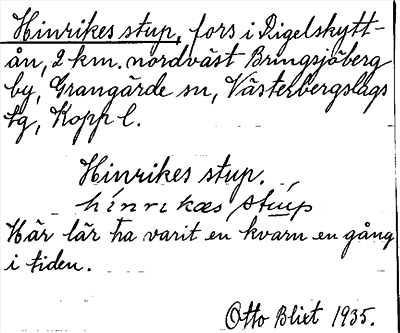 Hinrikes stup, fors i Rigelskytt-
ån, 2 km. nordväst Bringsjöberg
by, Grangärde sn, Västerbergslags
tg, Kopp l.
Hinrikes stup.
hinrikæs stup
Här lär ha varit en kvarn en gång
i tiden.
Otto Blixt 1935.